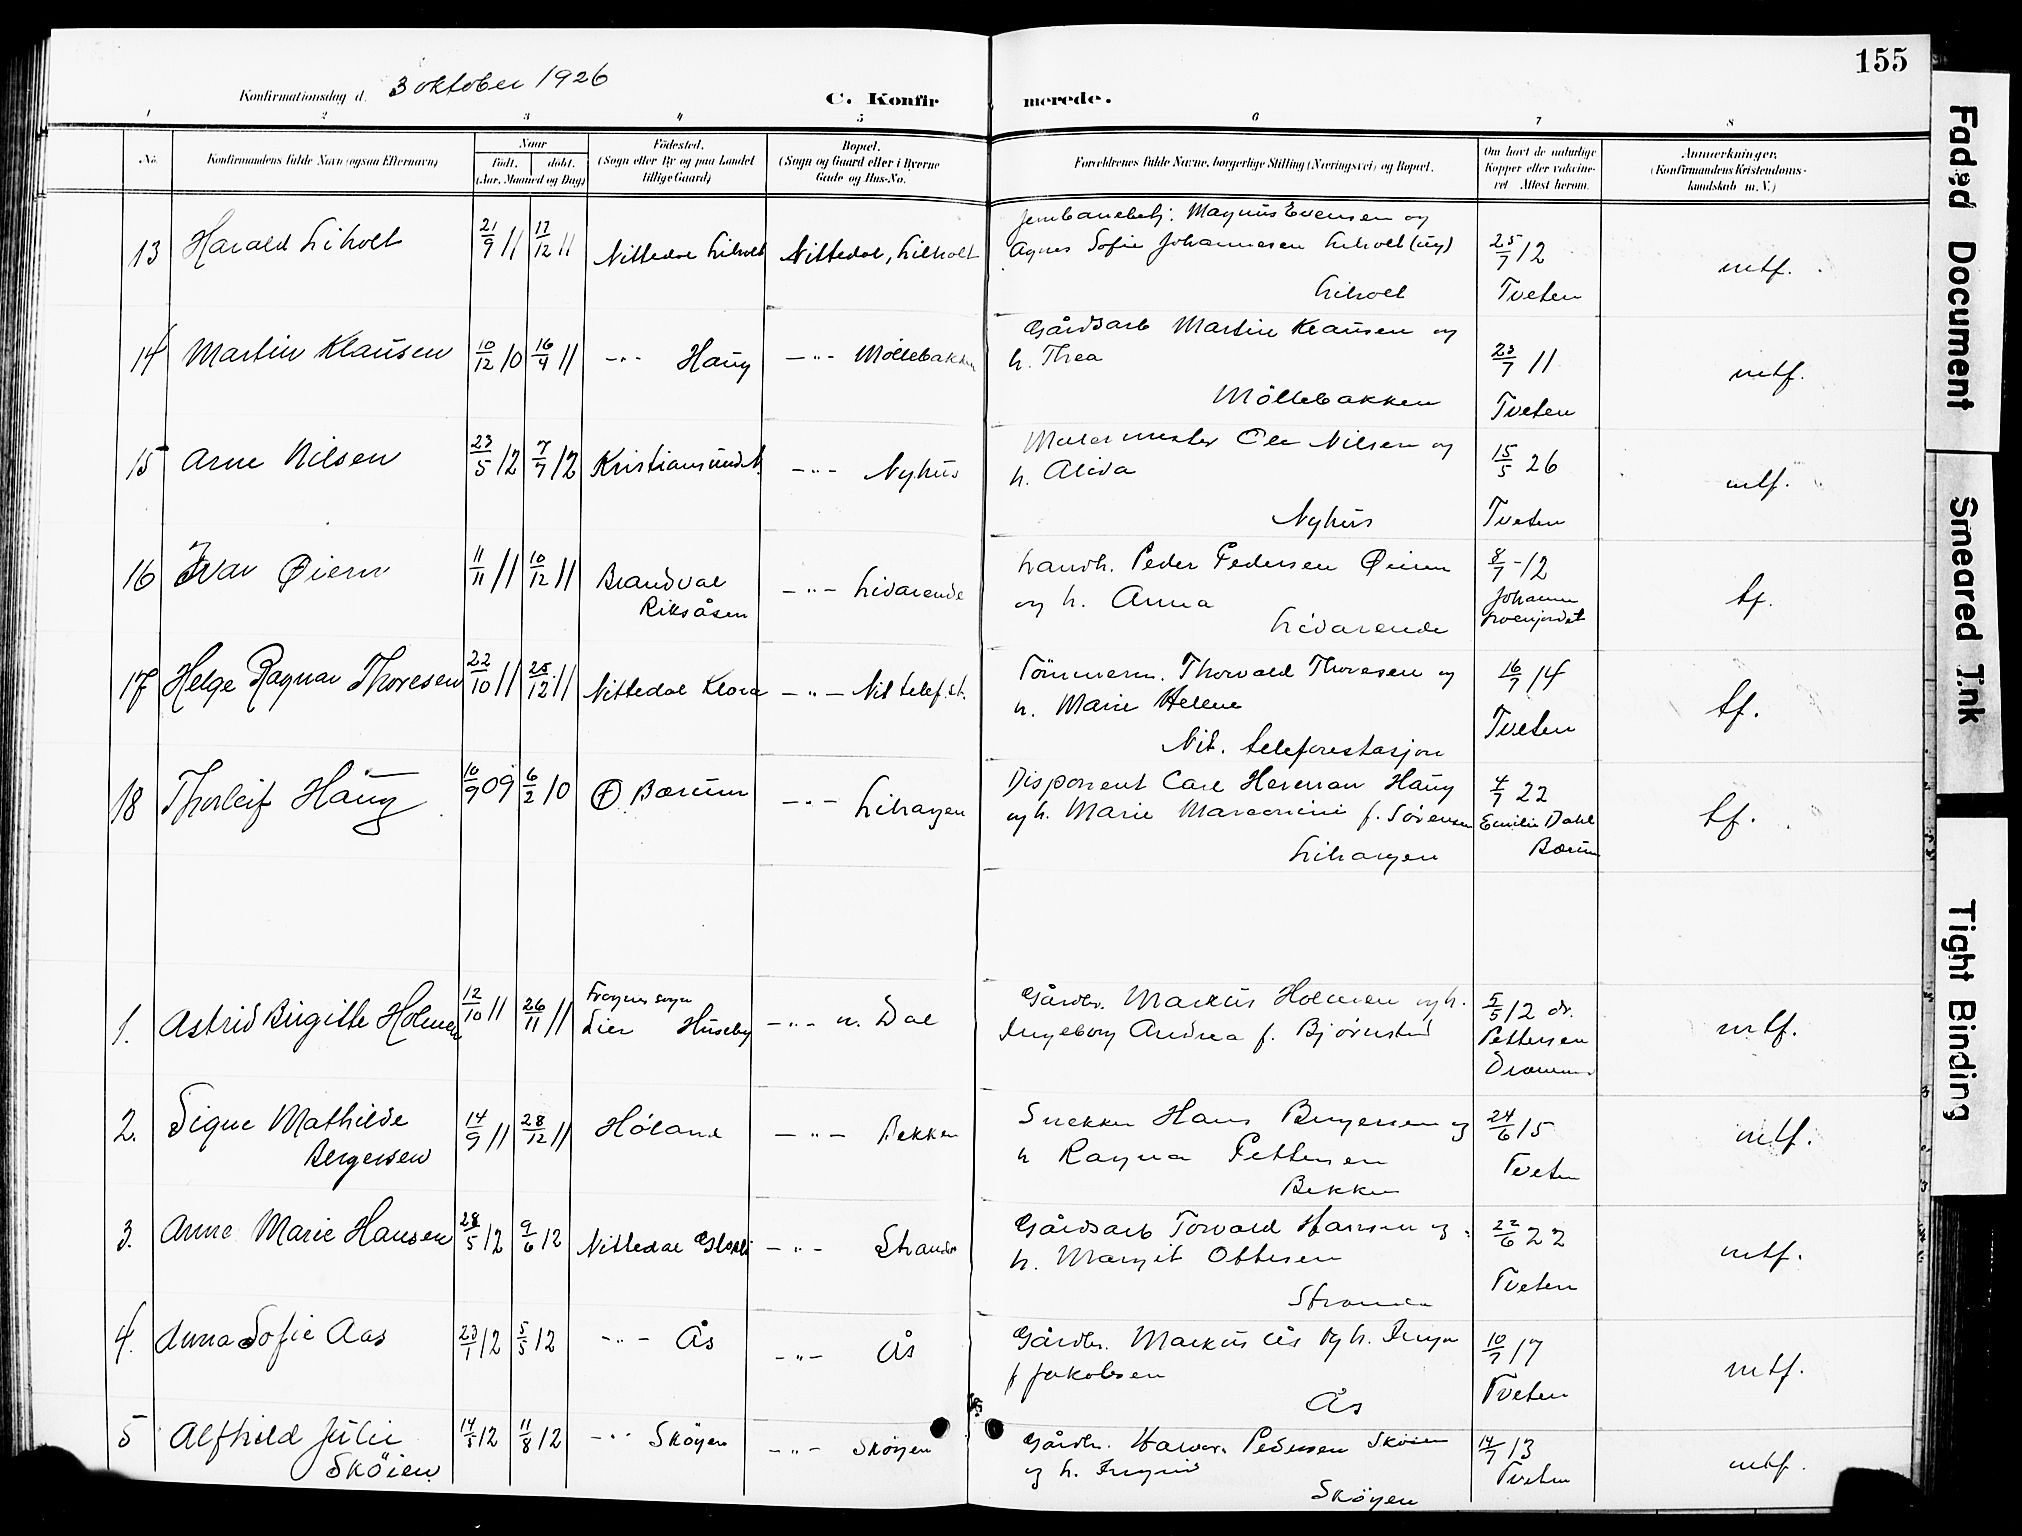 155
Konfirmationsdag d. 3 oktober 1926
C. Konfirmerede.
1 2 3 4 5 6 7 8
No. Konfirmandens fulde Navn (ogsaa Efternavn) Naar Født. døbt. (Aar, Maaned og Dag) Fødested. (Sogn eller By og paa Landet tillige Gaard) Bopæl. (Sogn og Gaard eller i Byerne Gade og Hus-No. Forældrenes fulde Navne, borgerlige Stilling (Næringsvei) og Bopæl. Om havt de naturlige Kopper eller vakcineret Attest herom. Anmærkninger, (Konfirmandens Kristendomskundskab m. V.)
13 Harald Liholt 21/9 11 17/12 11 Nittedal Liholt Nittedal, Liholt Jernbanebetj. Magnus Evensen og
Agnes Sofie Johannesen Liholt (ug) 25/7 12 mtf.
Liholt Tveten
14 Martin Klausen 10/12 10 16/4 11 -"- Haug -"- Möllebakken Gårdsarb Martin Klausen og
h. Thea 23/7 11 mtf.
Möllebakken Tveten
15 Arne Nilsen 23/5 12 7/7 12 Kristiansund N. -"- Nyhus Malermester Ole Nilsen og
h. Alida 15/5 26 mtf.
Nyhus Tveten
16 Ivar Øiern 11/11 11 10/12 11 Brandval -"- Livarende Landh. Peder Pedersen Øiern 8/7 - 12 tf.
Riksåsen og h. Anna Johanne
Livarende
17 Helge Ragnar Thoresen 22/10 11 25/12 11 Nittedal Klova -"- Nit telef. st. Tömmerm. Thorvald Thoresen og 16/7 14 tf.
h. Marie Helene Tveten
Nit. telefonstasjon
18 Thorleif Haug 10/9 09 6/2 10 Bærum -"- Lihagen Disponent Carl Herman Haug 4/7 22 tf.
og h. Marie f. Sørensen Emilie Dahl
Lihagen Bærum
1. Astrid Birgitte Holmen 12/10 11 26/11 11 Frogner sogn
Lier Huseby -"- n. Dal Gårdbr. Markus Holmen og h. 5/5 12 dr. mtf.
Ingeborg Andrea f. Bjørnstad Pettersen
2. Signe Mathilde
Bergersen 14/9 11 28/12 11 Høland -"- Bekken Snekker Hans Bergersen og 24/6 15 mtf.
h Ragna Pettersen Tveten
Bekken
3. Anne Marie Hansen 28/5 12 9/6 12 Nittedal -"- Stranden Gårdsarb Torvald Hansen og 22/6 22 mtf.
h. Margit Ottesen Tveten
Stranden
4. Anna Sofie Aas 23/1 12 5/5 12 -"- Ås -"- Ås Gårdbr. Markus Ås og h. Inga 10/7 17 mtf.
f Jakobsen Tveten
Ås
5 Alfhild Julie
Sköien 14/5 12 11/8 12 -"- Sköyen -"- Sköyen Gårdbr. Halvor Pedersen Sköien 14/7 13 mtf.
og h. Ingrid Tveten
Sköyen
Faded Document
Smeared Ink
Tight Binding